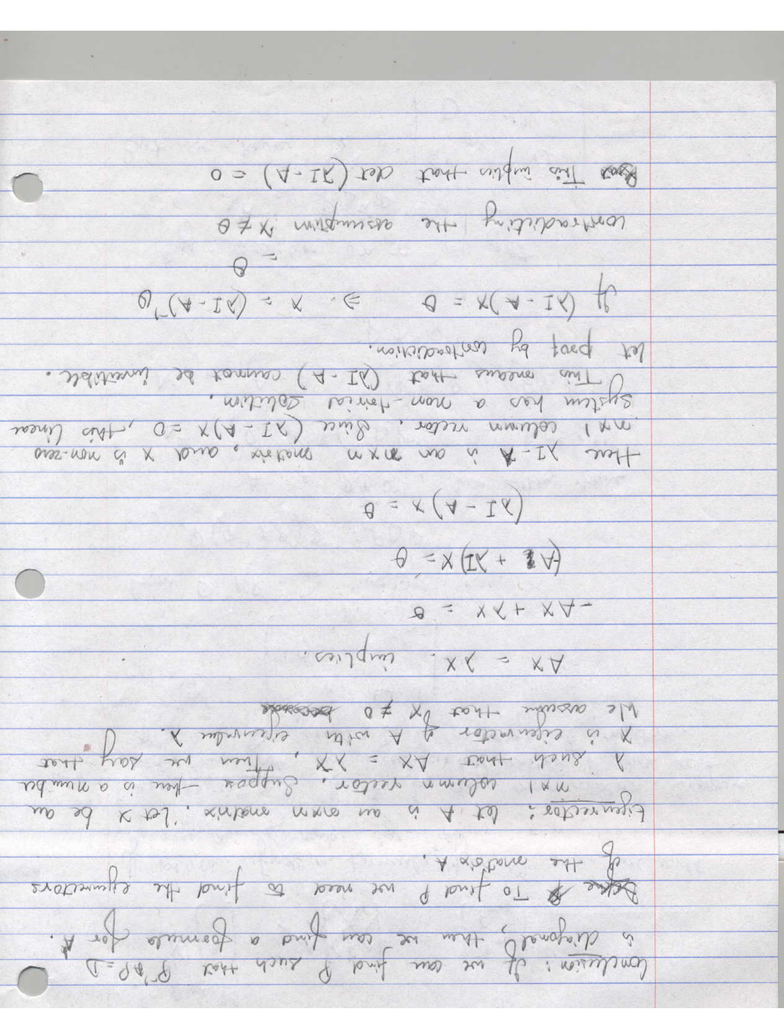 Conclusion: If we can find P such that P⁻¹AP = D
is diagonal, then we can find a formula for Aᵏ.
To find P we need to find the eigenvectors
of the matrix A.
Eigenvector: let A is an n×n matrix. Let X be an
n×1 column vector. Suppose there is a number
λ such that AX = λX, Then we say that
X is eigenvector of A with eigenvalue λ.
We assume that X ≠ 0
AX = λX. implies.
-AX + λX = θ
(-A + λI)X = θ
(λI - A)X = θ
Here λI-A is an n×n matrix, and X is non-zero
n×1 column vector. Since (λI-A)X = 0, this linear
system has a non-trivial solution.
This means that (λI-A) cannot be invertible.
let proof by contradiction.
If (λI-A)X = θ ⇒ X = (λI-A)⁻¹θ
= θ
contradicting the assumption X ≠ θ
This implies that det (λI-A) = 0